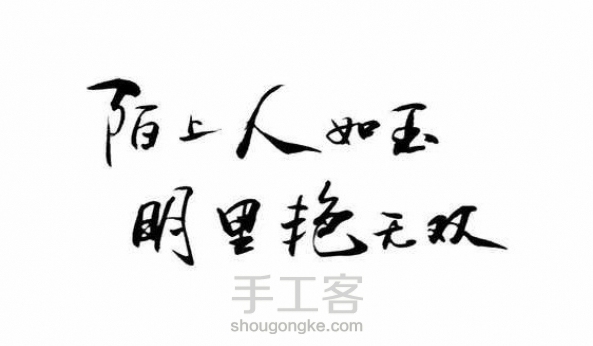 陌上人如玉
明里艳无双
手工客
shougongke.com